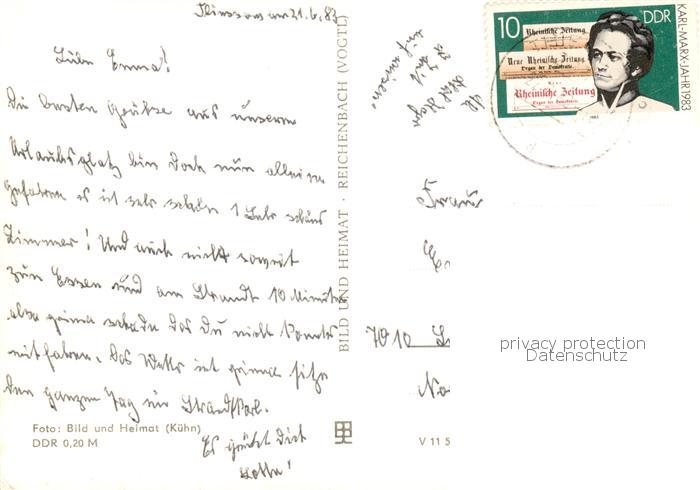 am 21.6.83
Liebe Emma!
Die besten Grüße aus unserem
Urlaubsplatz bin doch nun alleine
gefahren es ist sehr schön 1 sehr schöns
Zimmer! Und auch nicht soweit
zum Essen und am Strandt 10 Minuten
aber prima schade das Du nicht konntes
mitfahren. Das Wetter ist prima sitze
den ganzen Tag im Strandkorb.
Es grüßt Dich
Lotte!
Foto: Bild und Heimat (Kühn)
DDR 0,20 M
BILD UND HEIMAT · REICHENBACH (VOGTL)
V 11 5
10
DDR
KARL-MARX-JAHR 1983
Rheinische Zeitung
Neue Rheinische Zeitung
Organ der Demokratie.
Neue
Rheinische Zeitung
Organ der Demokratie.
1983
Frau
7010 L
No
privacy protection
Datenschutz